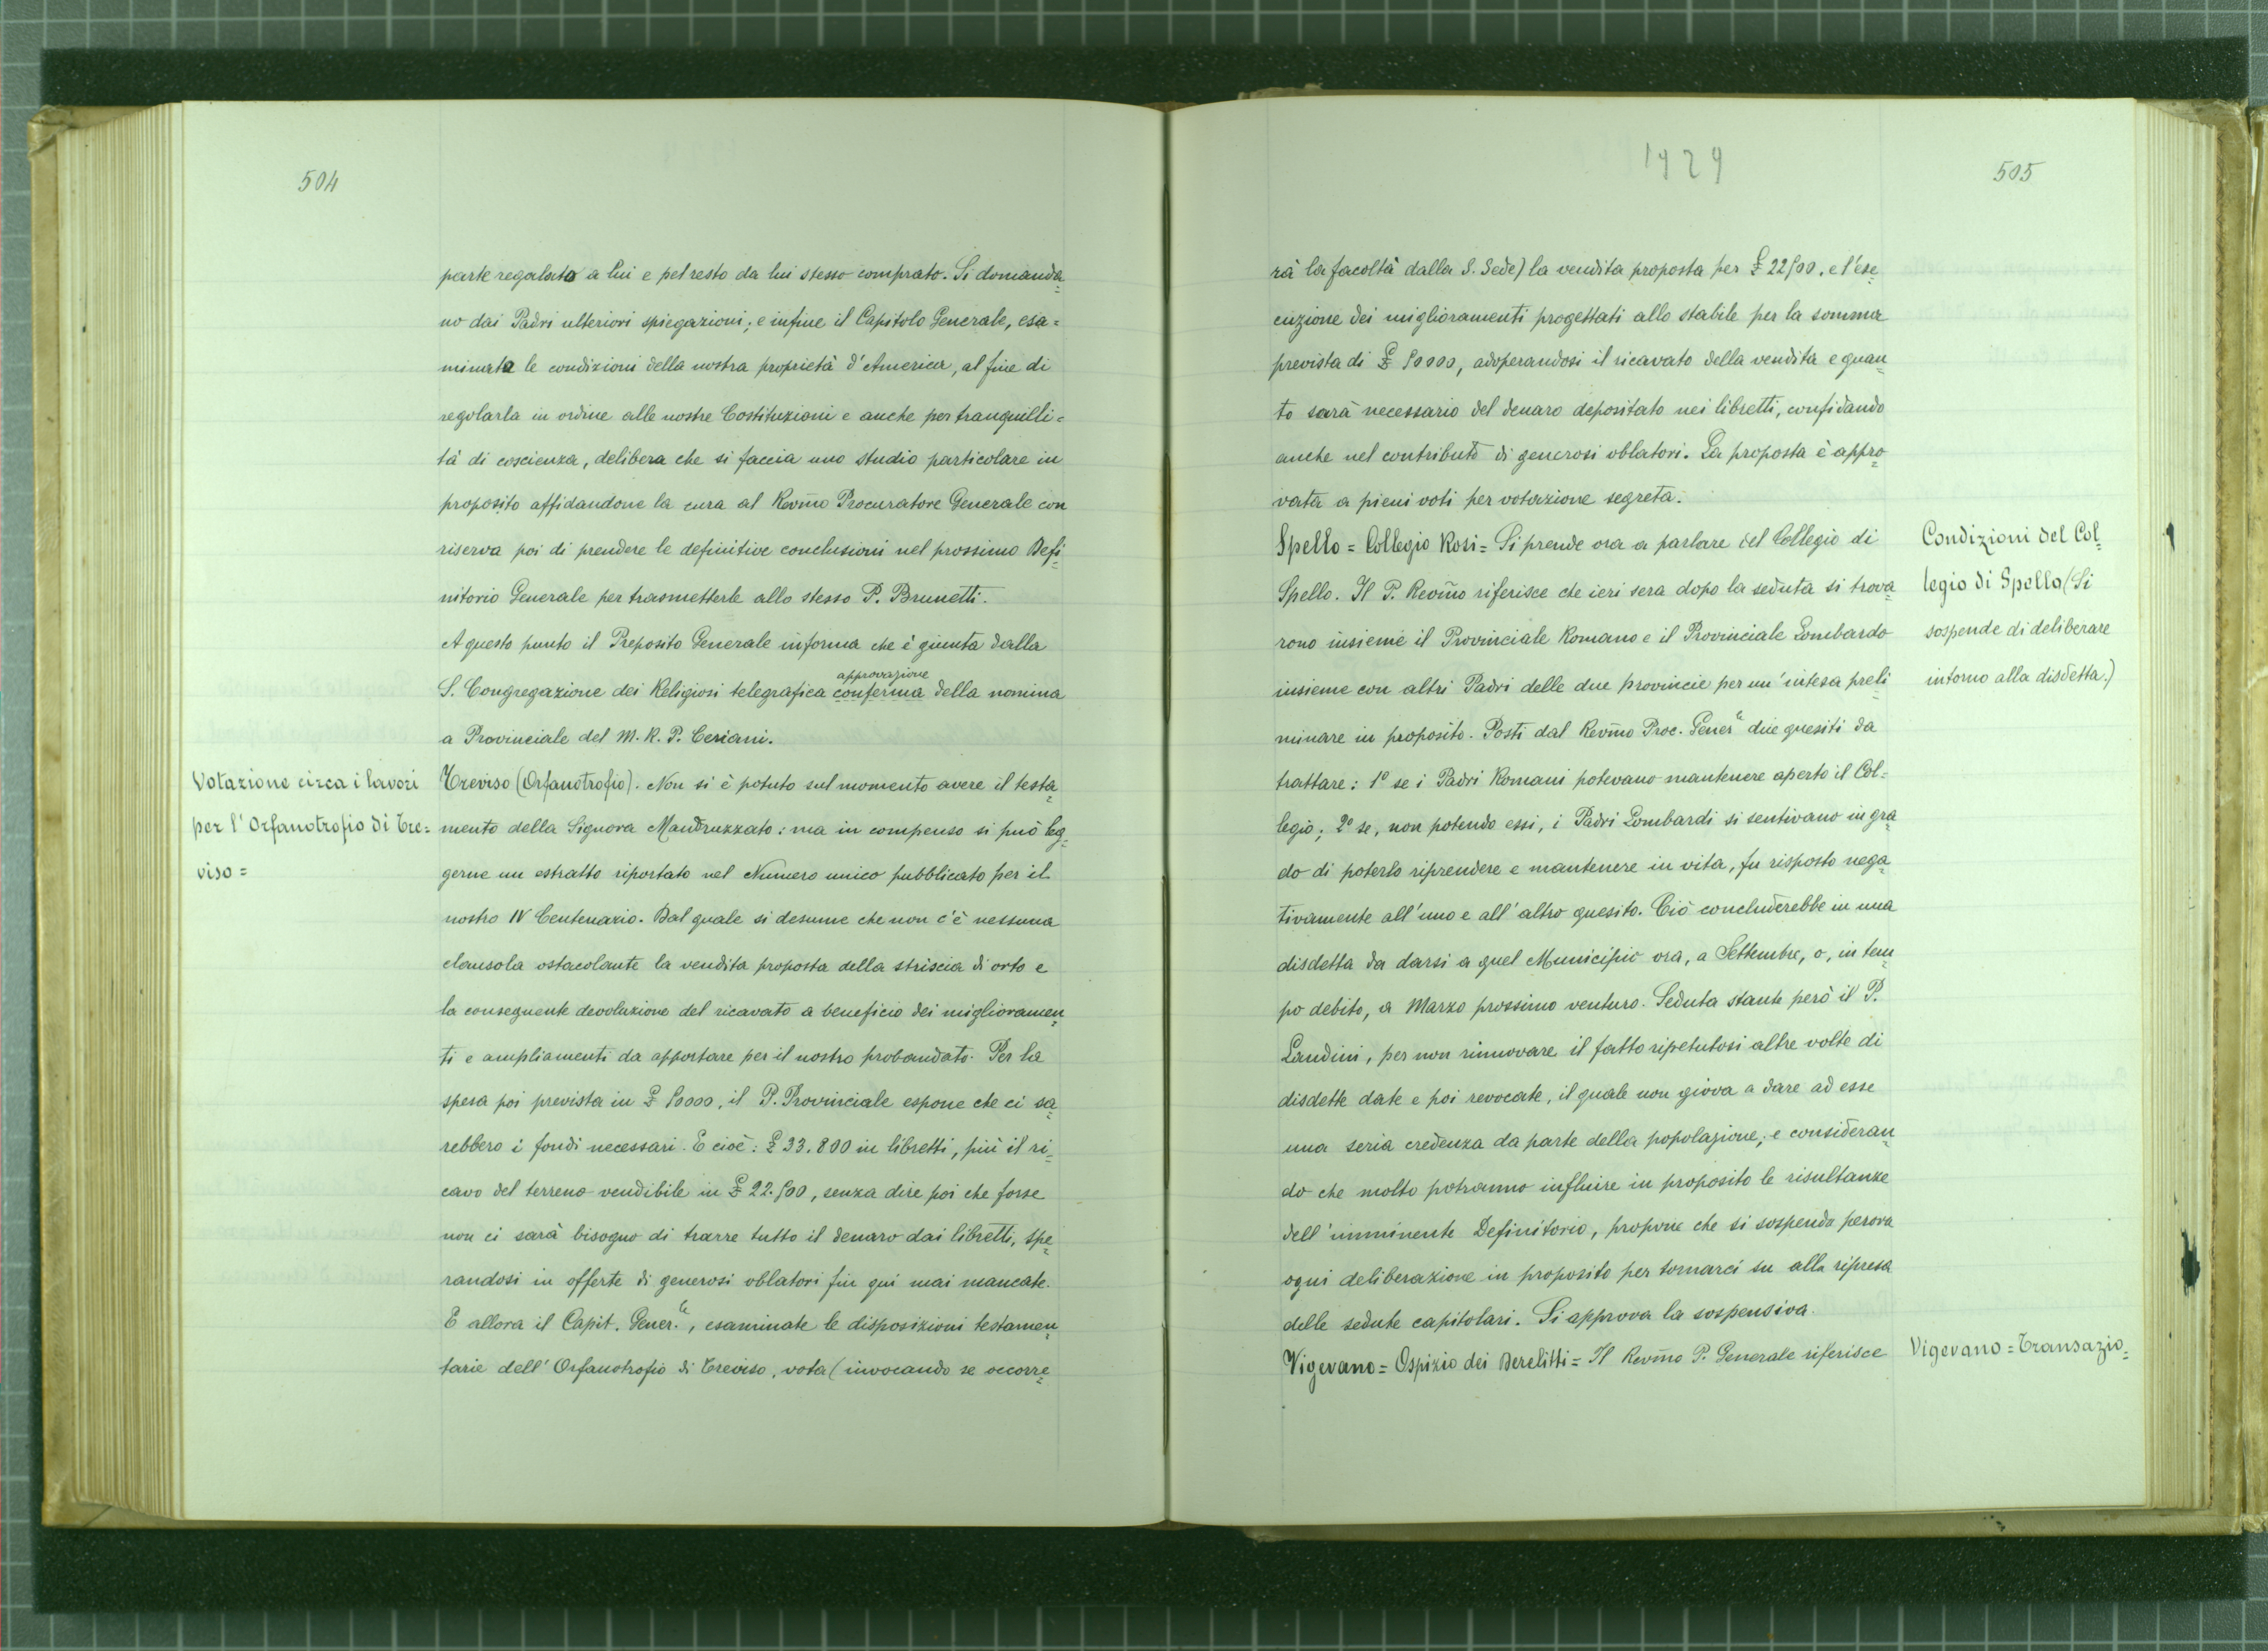 504
parte regalato a lui e pel resto da lui stesso comprato. Si domanda=
no dai Padri ulteriori spiegazioni; e infine il Capitolo Generale, esa=
minata le condizioni della nostra proprietà d'America, al fine di
regolarla in ordine alle nostre Costituzioni e anche per tranquilli=
tà di coscienza, delibera che si faccia uno studio particolare in
proposito affidandone la cura al Revm̃o Procuratore Generale con
riserva poi di prendere le definitive conclusioni nel prossimo Defi=
nitorio Generale per trasmetterle allo stesso P. Brunetti.
A questo punto il Preposito Generale informa che è giunta dalla
approvazione
S. Congregazione dei Religiosi telegrafica conferma della nomina
a Provinciale del M. R. P. Ceriani.
Votazione circa i lavori
per l'Orfanotrofio di Tre=
viso =
Treviso (Orfanotrofio). Non si è potuto sul momento avere il testa=
mento della Signora Mandruzzato: ma in compenso si può leg=
gerne un estratto riportato nel Numero unico pubblicato per il
nostro IV Centenario. Dal quale si desume che non c'è nessuna
clausola ostacolante la vendita proposta della striscia di orto e
la conseguente devoluzione del ricavato a beneficio dei miglioramen=
ti e ampliamenti da apportare per il nostro probandato. Per la
spesa poi prevista in £ 50000, il P. Provinciale espone che ci sa=
rebbero i fondi necessari. E cioè: £ 33.800 in libretti, più il ri=
cavo del terreno vendibile in £ 22.500, senza dire poi che forse
non ci sarà bisogno di trarre tutto il denaro dai libretti, spe=
randosi in offerte di generosi oblatori fin qui mai mancate.
E allora il Capit. Gener.le, esaminate le disposizioni testamen=
tarie dell'Orfanotrofio di Treviso, vota (invocando se occorre=
1929
505
rà la facoltà dalla S. Sede) la vendita proposta per £ 22500. e l'ese=
cuzione dei miglioramenti progettati allo stabile per la somma
prevista di £ 50000, adoperandosi il ricavato della vendita e quan=
to sarà necessario del denaro depositato nei libretti, confidando
anche nel contributo di generosi oblatori. La proposta è appro=
vata a pieni voti per votazione segreta.
Spello = Collegio Rosi = Si prende ora a parlare del Collegio di
Spello. Il P. Revm̃o riferisce che ieri sera dopo la seduta si trova=
rono insieme il Provinciale Romano e il Provinciale Lombardo
insieme con altri Padri delle due provincie per un'intesa preli=
minare in proposito. Posti dal Revm̃o Proc. Gener.le due quesiti da
trattare: 1º se i Padri Romani potevano mantenere aperto il Col=
legio; 2º se, non potendo essi, i Padri Lombardi si sentivano in gra=
do di poterlo riprendere e mantenere in vita, fu risposto nega=
tivamente all'uno e all'altro quesito. Ciò concluderebbe in una
disdetta da darsi a quel Municipio ora, a Settembre, o, in tem=
po debito, a Marzo prossimo venturo. Seduta stante però il P.
Landini, per non rinnovare il fatto ripetutosi altre volte di
disdette date e poi revocate, il quale non giova a dare ad esse
una seria credenza da parte della popolazione; e consideran=
do che molto potranno influire in proposito le risultanze
dell'imminente Definitorio, propone che si sospenda perora
ogni deliberazione in proposito per tornarci su alla ripresa
delle sedute capitolari. Si approva la sospensiva.
Condizioni del Col=
legio di Spello (Si
sospende di deliberare
intorno alla disdetta.)
Vigevano = Ospizio dei Derelitti = Il Revm̃o P. Generale riferisce
Vigevano = Transazio=